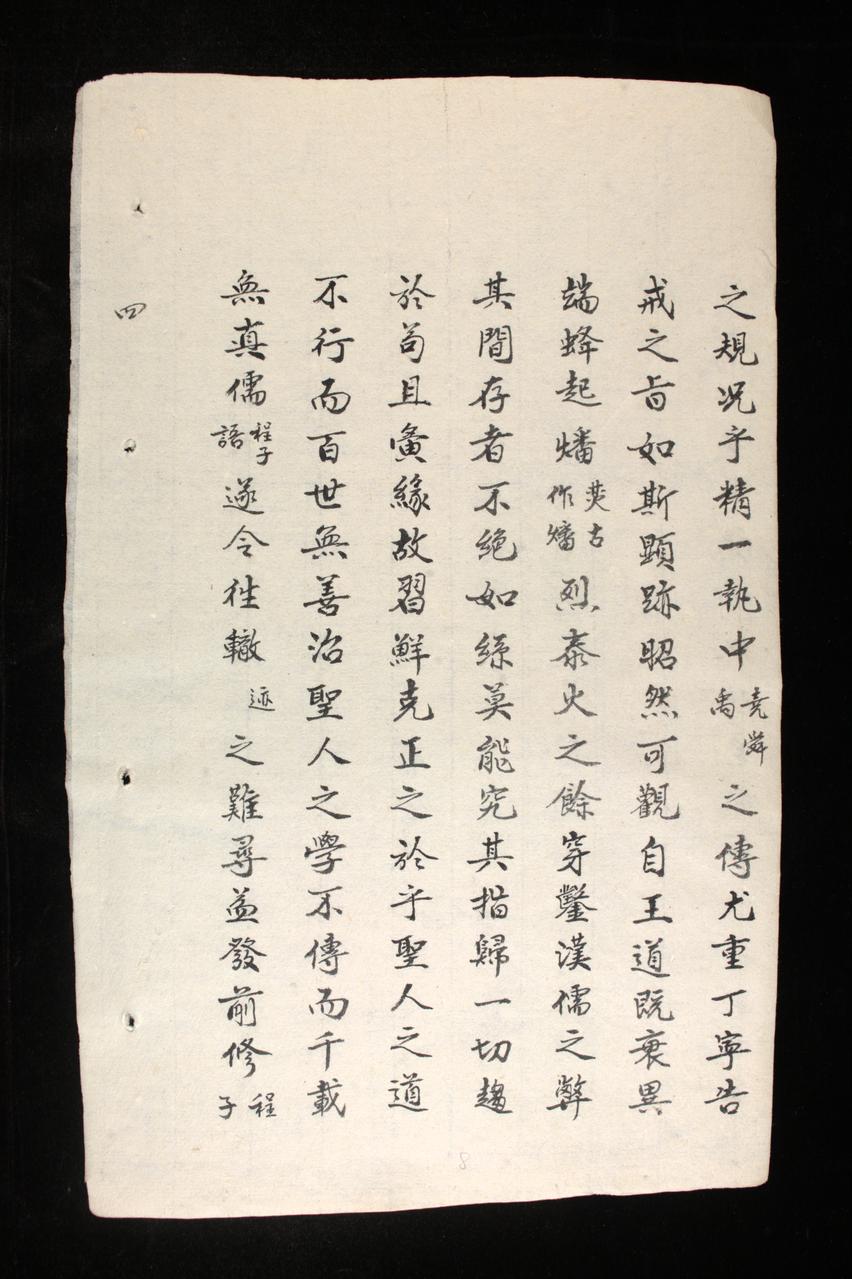 之規况乎精一執中堯舜禹之傳尤重丁寧告
戒之旨如斯顕跡昭然可觀自王道既衰異
端蜂起燔焚古作燔烈秦火之餘穿鑿漢儒之弊
其間存者不絶如綫莫能究其指歸一切趨
於苟且夤緣故習鮮克正之於乎聖人之道
不行而百世無善治聖人之學不傳而千載
無真儒程子語遂令往轍迹之難尋益發前修程子
四
8